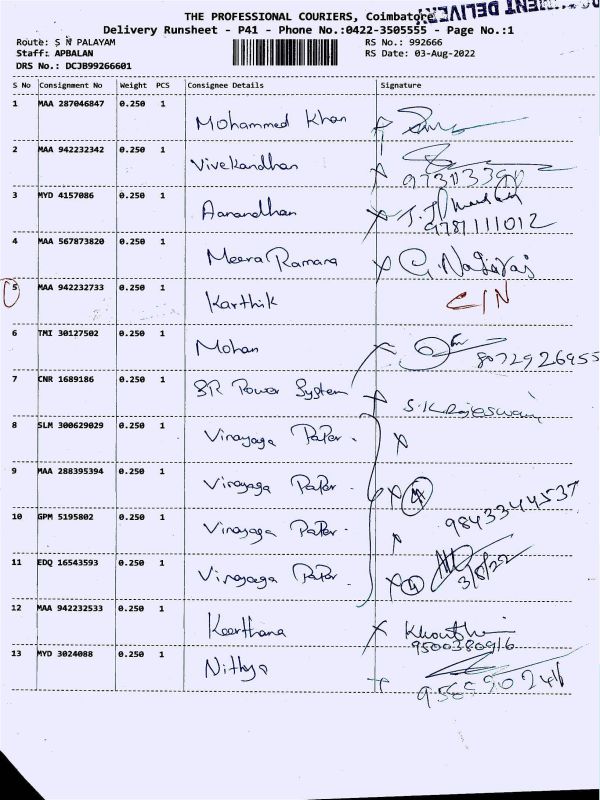 DELIVERY
THE PROFESSIONAL COURIERS, Coimbatore
Delivery Runsheet - P41 - Phone No.:0422-3505555 - Page No.:1
Route: S N PALAYAM RS No.: 992666
Staff: APBALAN RS Date: 03-Aug-2022
DRS No.: DCJB99266601
S No Consignment No Weight PCS Consignee Details Signature
1 MAA 287046847 0.250 1 Mohammed Khan
2 MAA 942232342 0.250 1 Vivekandhan
3 MYD 4157086 0.250 1 Aanandhan
9781111012
4 MAA 567873820 0.250 1 Meera Ramana G. Nagaraj
5 MAA 942232733 0.250 1 Karthik C/N
6 TMI 30127502 0.250 1 Mohan 8072926955
7 CNR 1689186 0.250 1 SR Power System S.K.Rajeswari
8 SLM 300629029 0.250 1 Vinayaga Paper.
9 MAA 288395394 0.250 1 Vinayaga Paper. 4
9843344537
10 GPM 5195802 0.250 1 Vinayaga Paper.
11 EDQ 16543593 0.250 1 Vinayaga Paper. 4 3/8/22
12 MAA 942232533 0.250 1 Keerthana
9500380916
13 MYD 3024088 0.250 1 Nithya